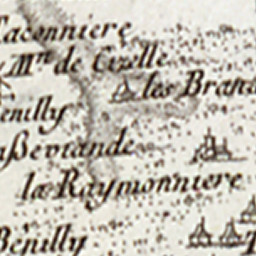 Laconniere
Mᶦⁿ de Cizelle
les Bran
enilly
aßeviande
la Raymonniere
Bénilly